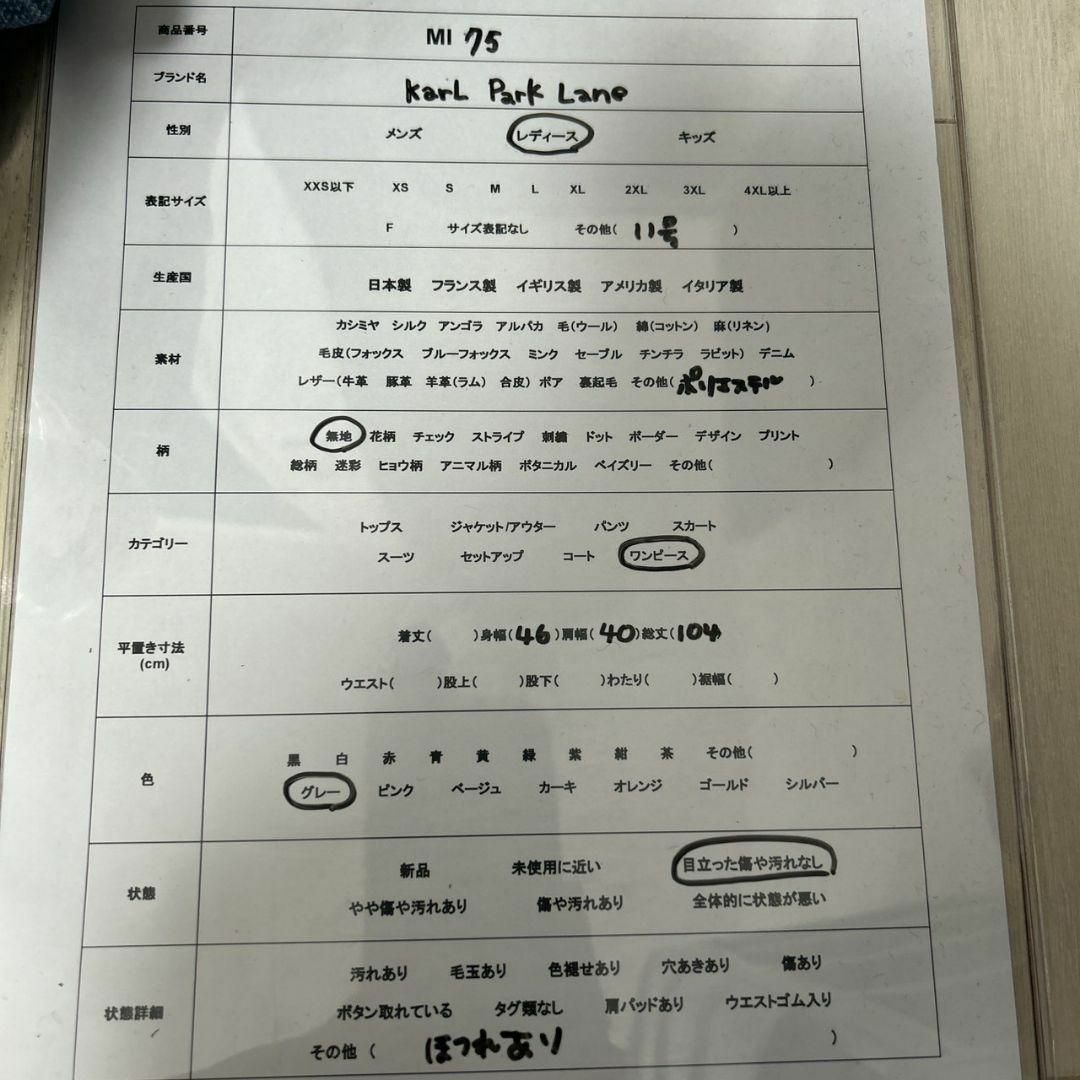 商品番号 MI 75
ブランド名 KarL Park Lane
性別 メンズ レディース キッズ
表記サイズ XXS以下 XS S M L XL 2XL 3XL 4XL以上
F サイズ表記なし その他( 11号 )
生産国 日本製 フランス製 イギリス製 アメリカ製 イタリア製
素材 カシミヤ シルク アンゴラ アルパカ 毛(ウール) 綿(コットン) 麻(リネン)
毛皮(フォックス ブルーフォックス ミンク セーブル チンチラ ラビット) デニム
レザー(牛革 豚革 羊革(ラム) 合皮) ボア 裏起毛 その他( ポリエステル )
柄 無地 花柄 チェック ストライプ 刺繍 ドット ボーダー デザイン プリント
総柄 迷彩 ヒョウ柄 アニマル柄 ボタニカル ペイズリー その他( )
カテゴリー トップス ジャケット/アウター パンツ スカート
スーツ セットアップ コート ワンピース
平置き寸法 (cm) 着丈( )身幅( 46 )肩幅( 40 )総丈( 104 )
ウエスト( )股上( )股下( )わたり( )裾幅( )
色 黒 白 赤 青 黄 緑 紫 紺 茶 その他( )
グレー ピンク ベージュ カーキ オレンジ ゴールド シルバー
状態 新品 未使用に近い 目立った傷や汚れなし
やや傷や汚れあり 傷や汚れあり 全体的に状態が悪い
状態詳細 汚れあり 毛玉あり 色褪せあり 穴あきあり 傷あり
ボタン取れている タグ類なし 肩パッドあり ウエストゴム入り
その他 ( ほつれあり )